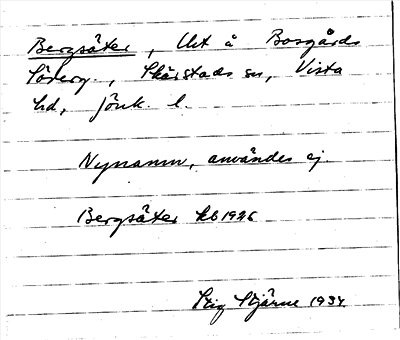 Bergsäter, Lht å Bosgårds
Söderg., Skärstads sn, Vista
hd, Jönk. l.
Nynamn, användes ej.
Bergsäter kb 1926
Stig Stjärne 1934.